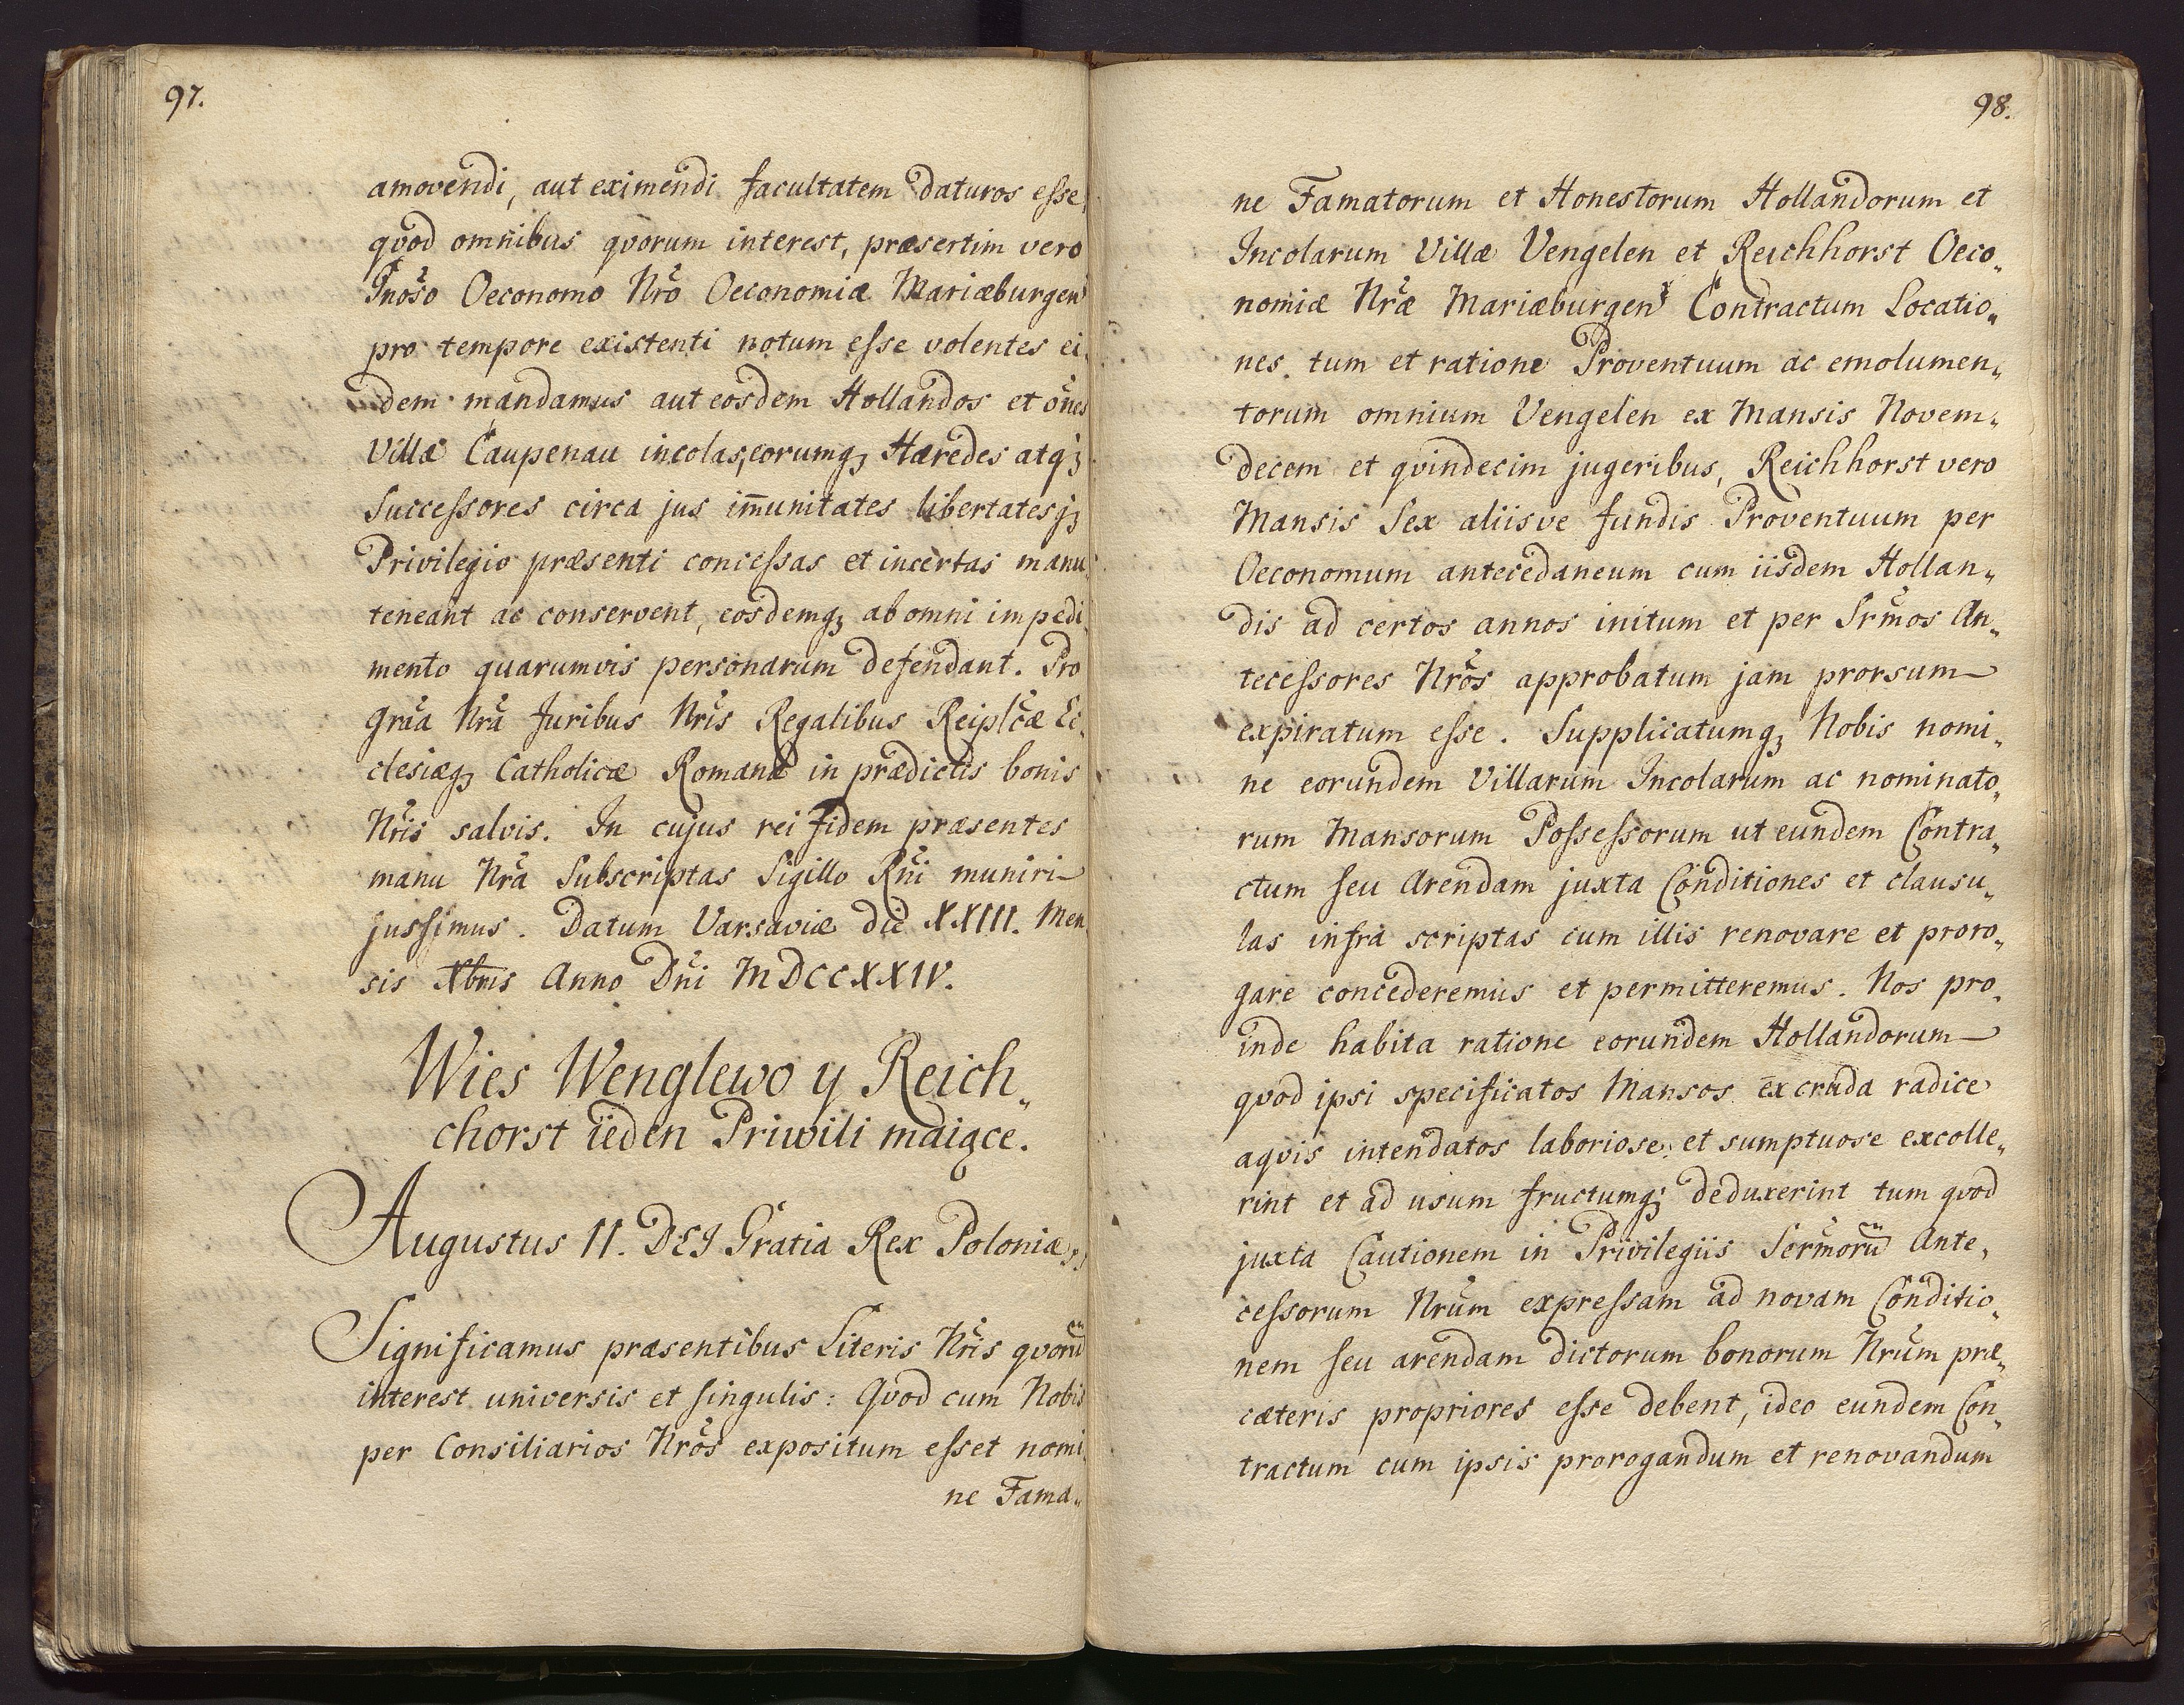 97.
amovendi, aut eximendi facultatem daturos esse,
qvod omnibus qvorum interest, præsertim vero
Gnoso Oeconomo Nro Oeconomiæ Mariæburgen
pro tempore existenti notum esse volentes ei„
dem mandamus aut eosdem Hollandos et ones
Villæ Caupenau incolas, eorumq3 Hæredes atq3
Successores circa jus im̅unitates libertatesq3
Privilegio præsenti concessas et incertas manu„
teneant ac conservent, eosdemq3 ab omni impedi„
mento quarumvis personarum defendant. Pro
Gra̅a Nra Juribus Nris Regalibus Reiplcæ Ec„
clesiæq3 Catholicæ Romanæ in prædictis bonis
Nris salvis. In cujus rei fidem præsentes
manu Nra Subscriptas Sigillo Rni muniri
jussimus. Datum Varsaviæ die XXIII. Men
sis Xbris Anno Dni MDCCXXIV.
Wies Wenglewo y Reich„
chorst ieden Priwili maiące.
Augustus II. DEI Gratia Rex Poloniæ
Significamus præsentibus Literis Nris qvoru̅
interest universis et singulis: Qvod cum Nobis
per Consiliarios Nros expositum esset nomi„
ne Fama„
98.
ne Famatorum et Honestorum Hollandorum et
Incolarum Villæ Vengelen et Reichhorst Oeco„
nomiæ Nræ Mariæburgen Contractum Locatio„
nes. tum et ratione Proventuum ac emolumen„
torum omnium Vengelen ex Mansis Novem„
decem et qvindecim jugeribus, Reichhorst vero
Mansis Sex aliisve fundis Proventuum per
Oeconomum antecedaneum cum iisdem Hollan„
dis ad certos annos initum et per Srmos An„
tecessores Nros approbatum jam prorsum
expiratum esse. Supplicatumq3 Nobis nomi„
ne eorundem Villarum Incolarum ac nominato„
rum Mansorum Possessorum ut eundem Contra„
ctum seu Arendam juxta Conditiones et clausu„
las infra scriptas cum illis renovare et proro„
gare concederemus et permitteremus. Nos pro„
inde habita ratione eorundem Hollandorum
qvod ipsi specificatos Mansos ex cruda radice
aqvis intendatos laboriose et sumptuose excolle„
rint et ad usum fructumq3 deduxerint tum qvod
juxta Cautionem in Privilegiis Sermoru̅ Ante„
cessorum Nrum expressam ad novam Conditio„
nem seu arendam dictorum bonorum Nrum præ„
cæteris propriores esse debent, ideo eundem Con„
tractum cum ipsis prorogandum et renovandum